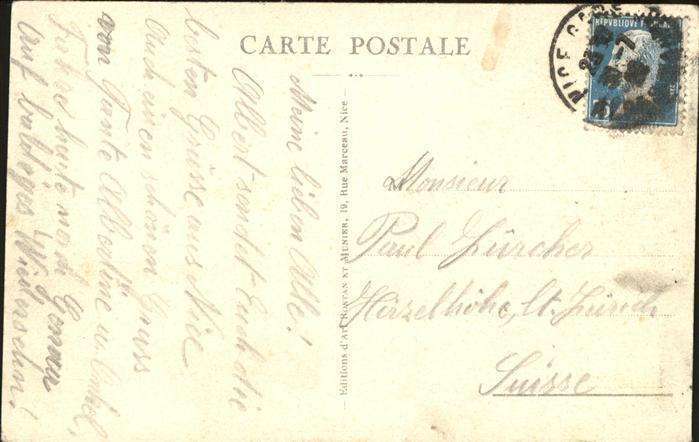 CARTE POSTALE
Meine lieben Alle!
Albert sendet Euch die
besten Grüsse aus Nice
Auch einen schönen Gruss
von Tante Albertine u. Onkel,
Fahre heute nach Genua
Auf baldiges Wiedersehn!
Editions d'Art ROSTAN ET MUNIER, 19, Rue Marceau, Nice
Monsieur
Paul Zürcher
Hirzelhöhe, Kt. Zürich
Suisse
NICE
REPUBLIQUE FRANÇAISE